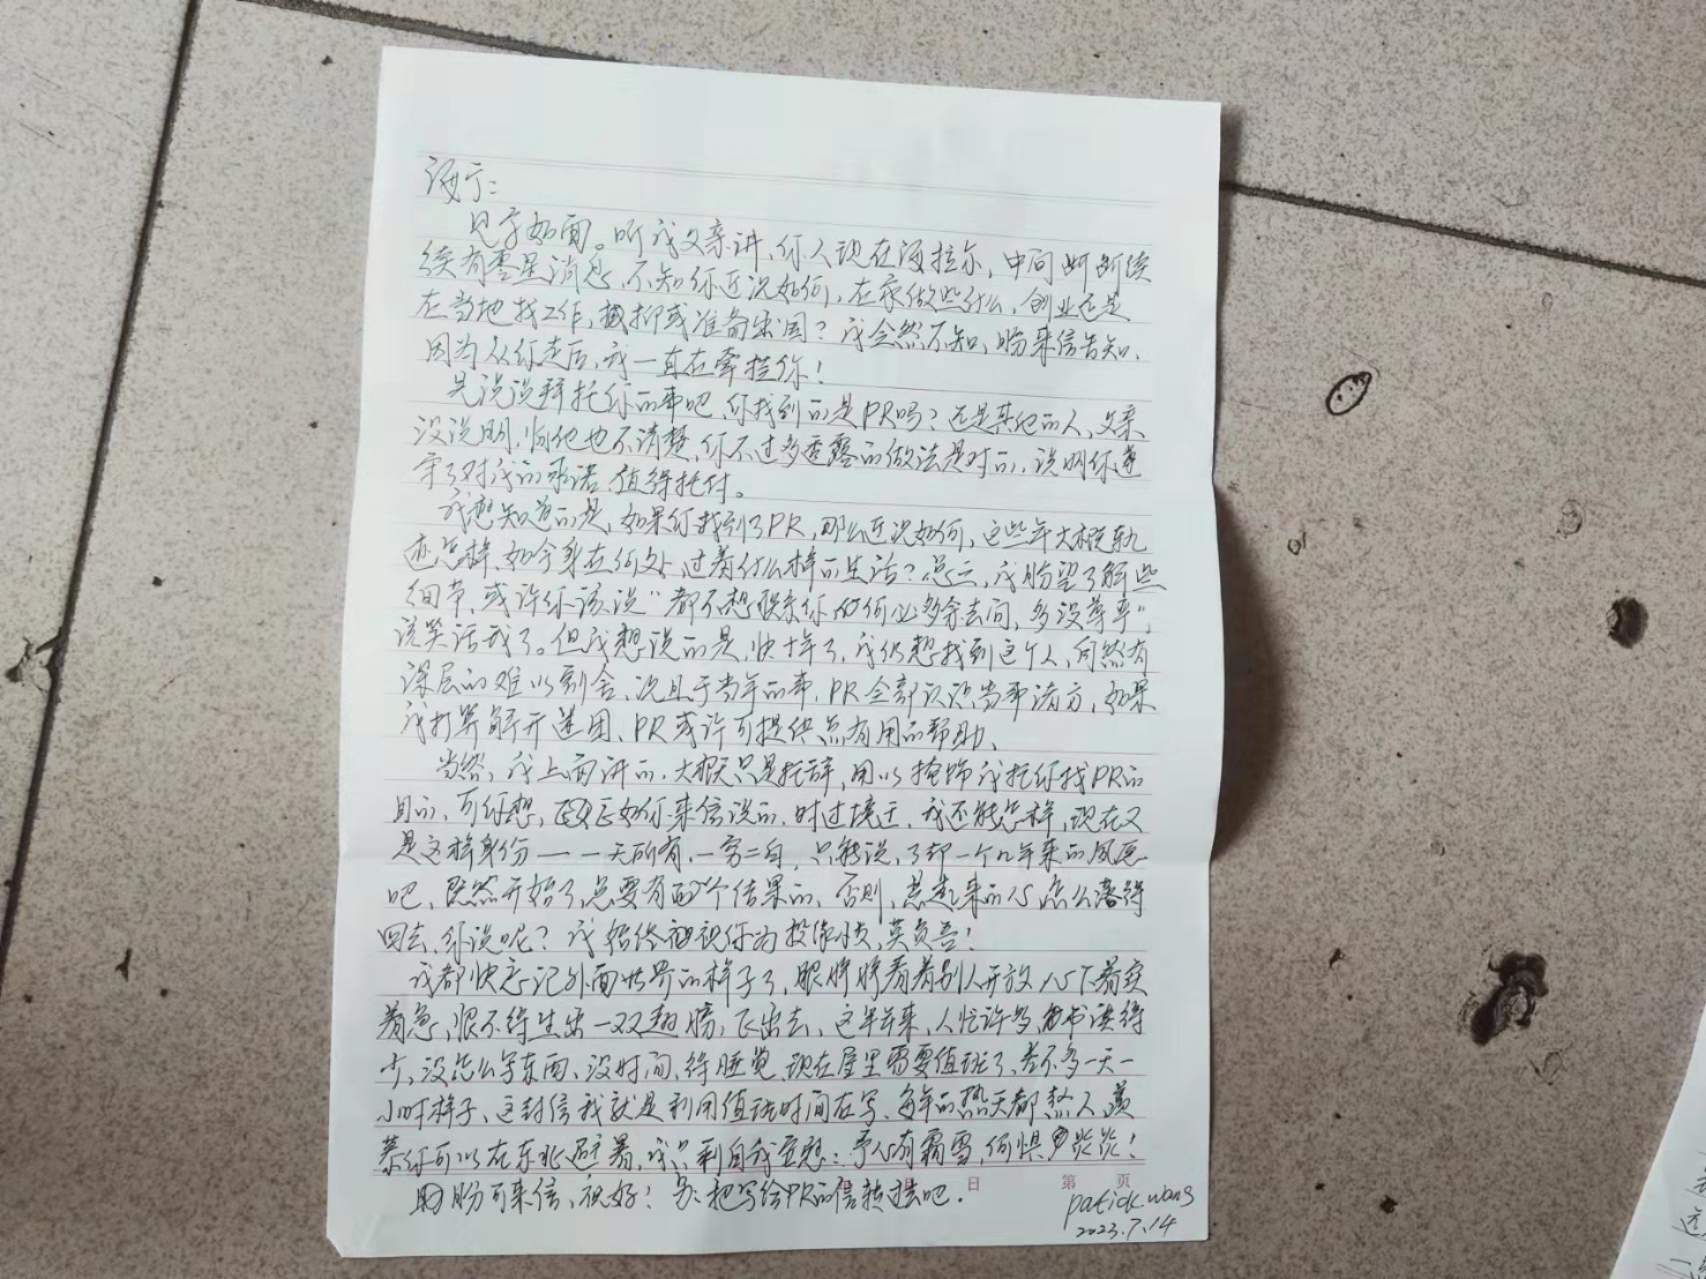 海宁:
见字如面。听我父亲讲,你人现在海拉尔,中间断断续
续有零星消息,不知你近况如何,在家做些什么,创业还是
在当地找工作,抑或准备出国?我全然不知,盼来信告知,
因为从你走后,我一直在牵挂你!
先说说拜托你的事吧,你找到的是PR吗?还是其他的人,父亲
没说明,怕他也不清楚,你不过多透露的做法是对的,说明你遵
守了对我的承诺,值得托付。
我想知道的是,如果你找到了PR,那么近况如何,这些年大概轨
迹怎样,如今身在何处,过着什么样的生活?总之,我盼望了解些
细节,或许你该说“都不想联系你的何必多余去问,多没尊严”,
说笑话我了。但我想说的是,快十年了,我仍想找到这个人,固然有
深层的难以割舍,况且于当年的事,PR全部认识当事诸方,如果
我打算解开迷团,PR或许可提供点有用的帮助、
当然,我上面讲的,大概只是托辞,用以掩饰我托你找PR的
目的,可你想,正如你来信说的,时过境迁,我还能怎样,现在又
是这样身份——一无所有,一穷二白,只能说,了却一个几年来的夙愿
吧,既然开始了,总要有个结果的,否则,悬起来的心怎么落得
回去,你说呢?我始终视你为挚友,莫负吾!
我都快忘记外面世界的样子了,眼睁睁看着别人开放,心下着实
着急,恨不得生出一双翅膀,飞出去,这半年来,人忙许多,书读得
少,没怎么写东西,没时间,得睡觉,现在屋里需要值班了,差不多一天一
小时样子,这封信我就是利用值班时间在写,每年的热天都熬人,羡
慕你可以在东北避暑,我只剩自我宽慰:予心有霜雪,何惧炎炎!
盼可来信,祝好!另:把写给PR的信转过去吧.
日 第 页
patick.wang
2023.7.14